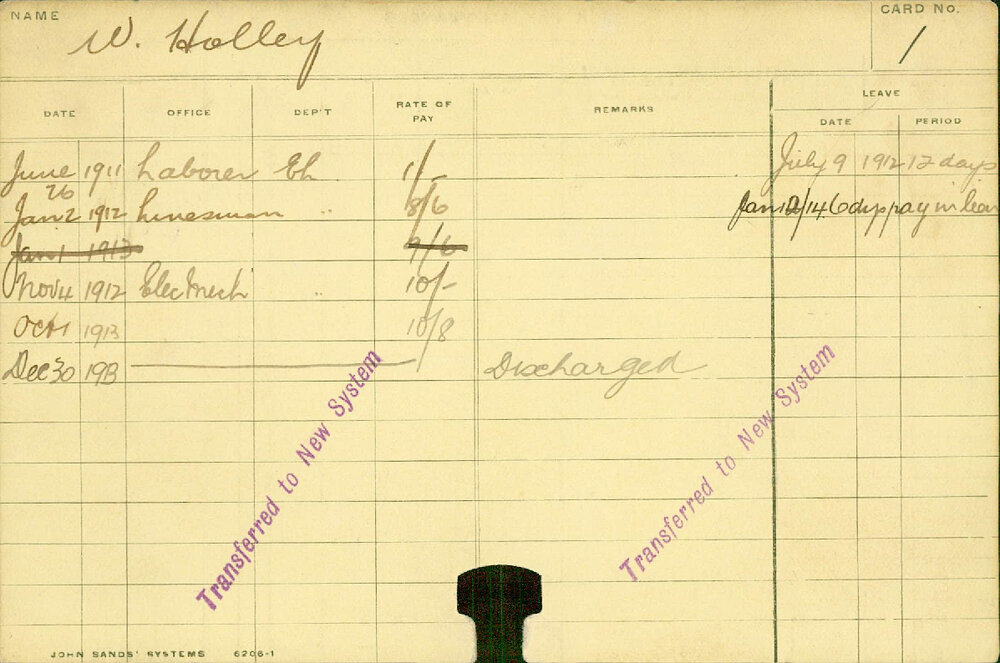 NAME W. Holley CARD No. 1
DATE OFFICE DEP'T RATE OF PAY REMARKS LEAVE
DATE PERIOD
June 26 1911 Laborer Eh 1/- July 9 1912 12 days
Jan 2 1912 Linesman " 8/6 Jan 12/14 6 dys pay in lieu
Jan 1 1913 9/6
Nov 4 1912 Elec Mech " 10/-
Oct 1 1913 10/8
Dec 30 1913 Discharged
Transferred to New System
Transferred to New System
JOHN SANDS' SYSTEMS 6206-1